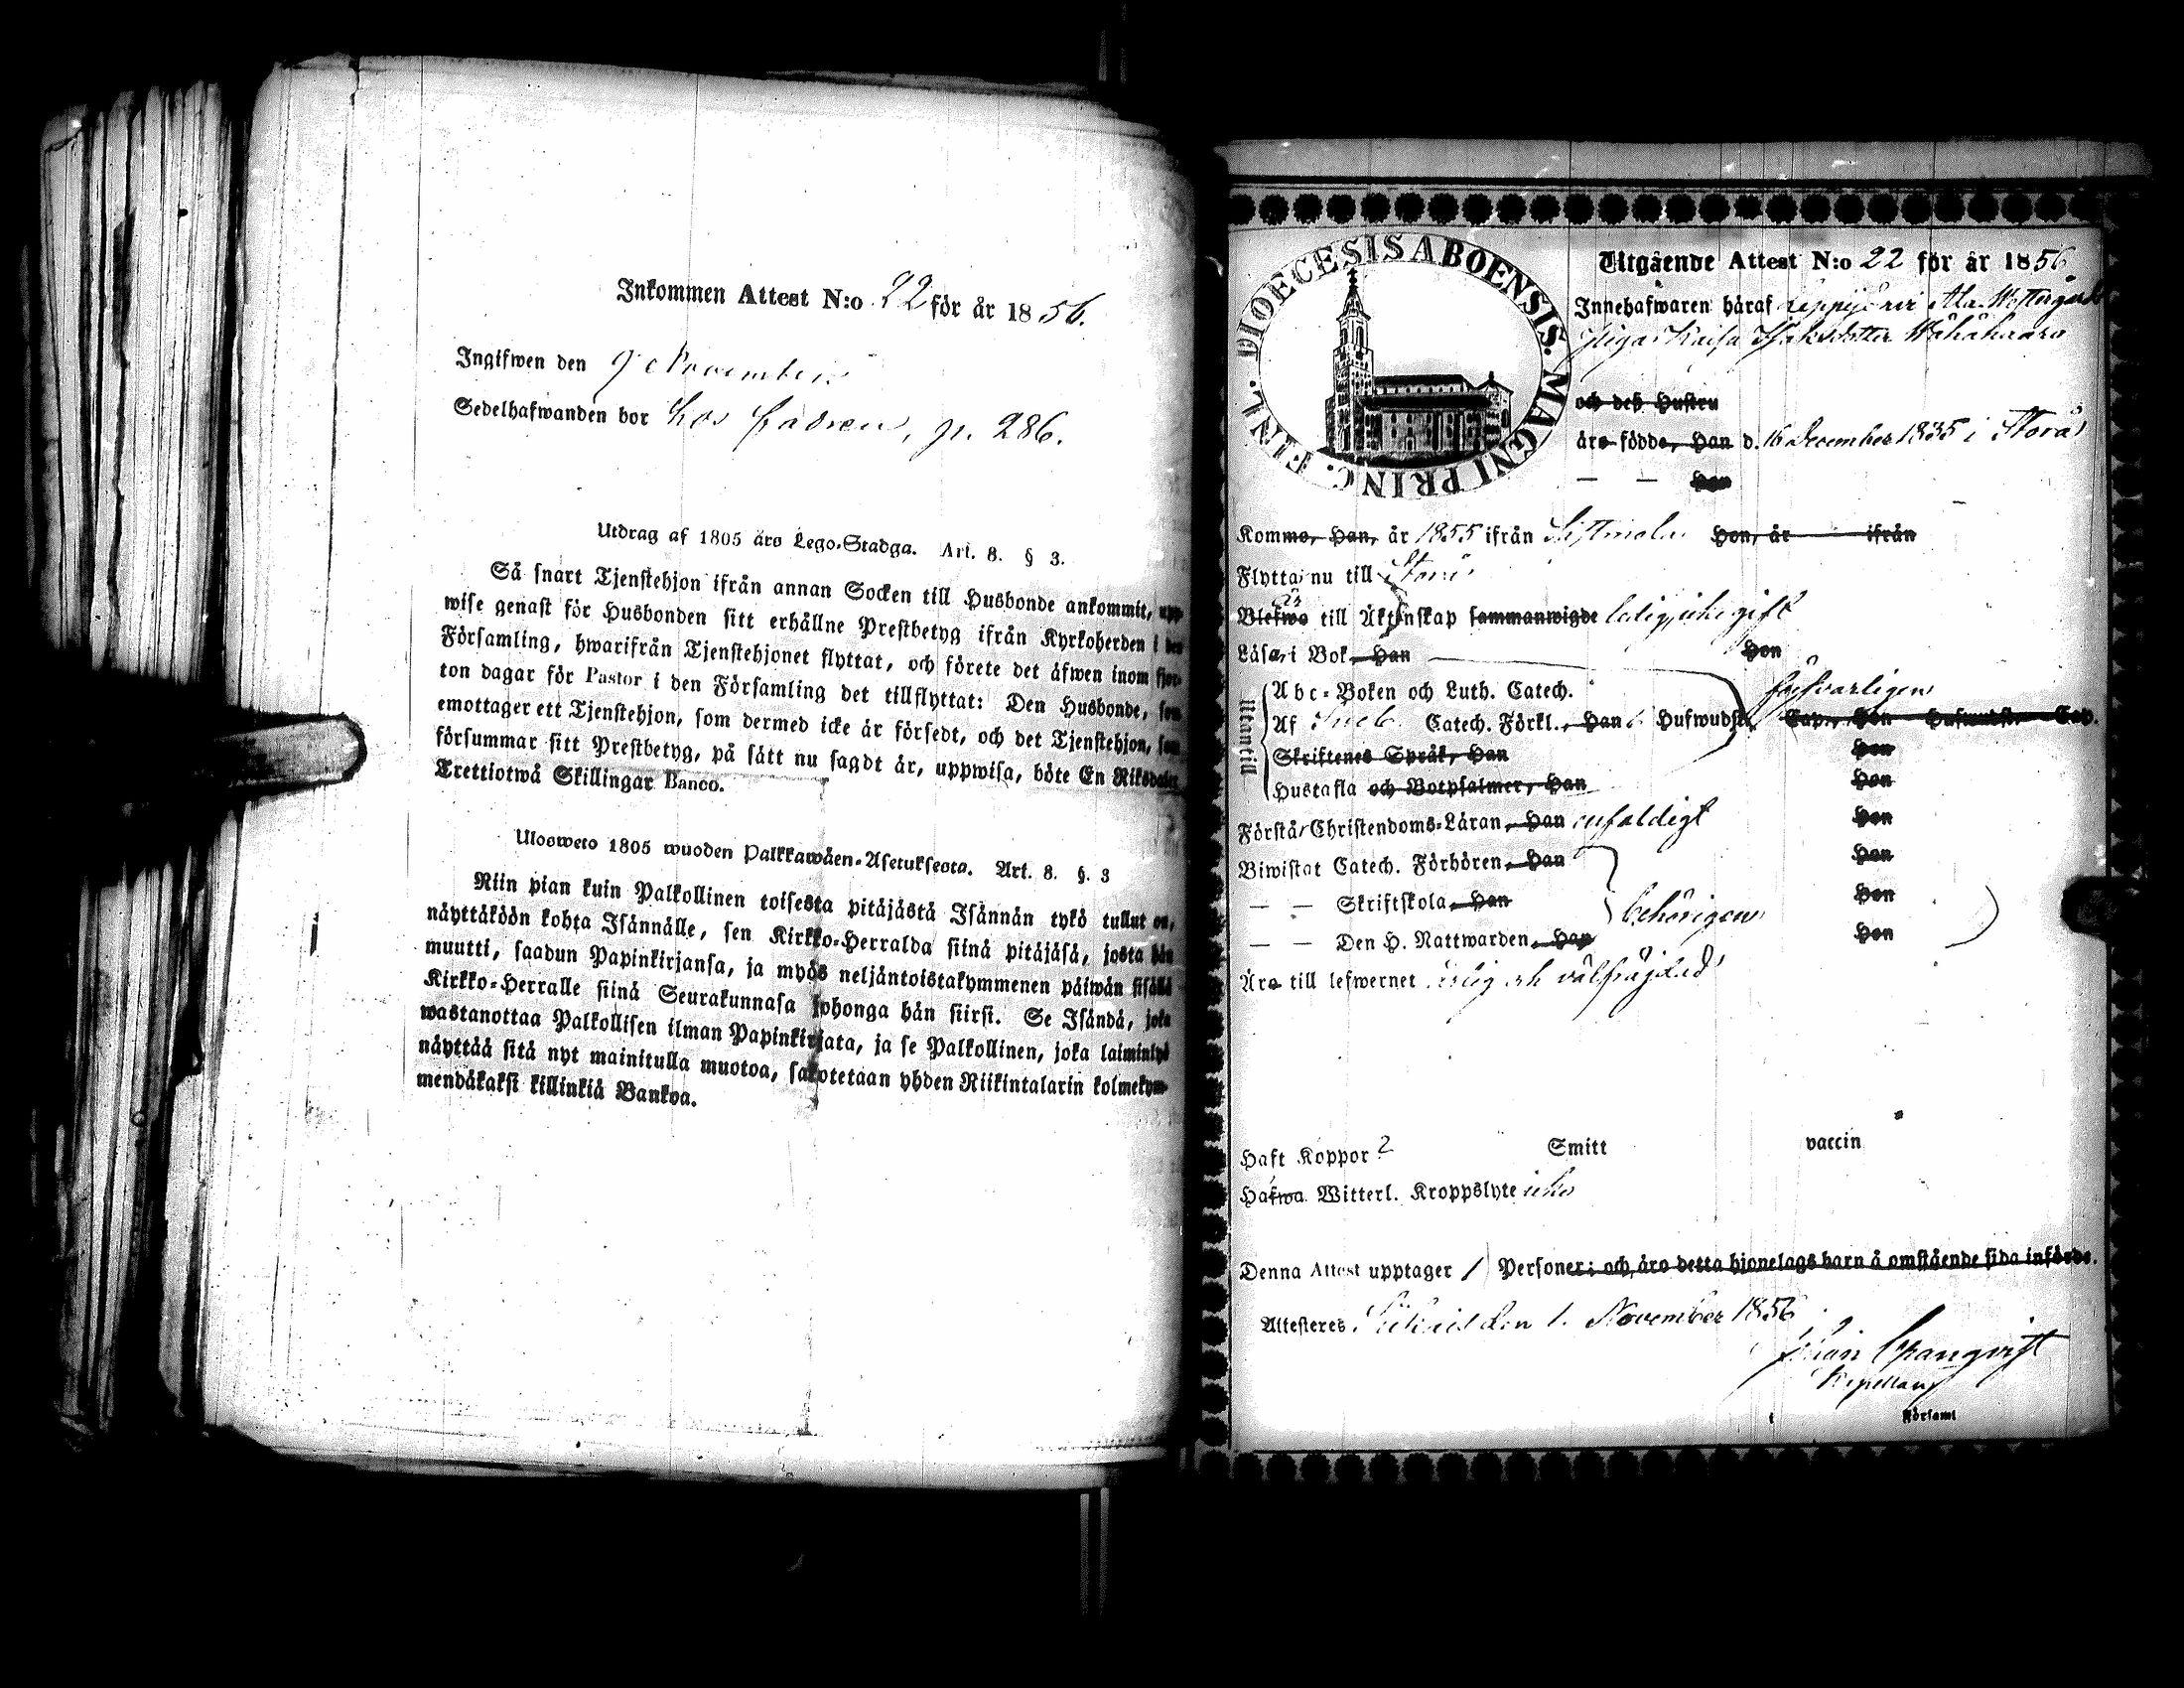 Inkommen Attest N:o 22 för år 1856.
Ingifwen den 9 November
Sedelhafwanden bor hos fadren, p. 286.
Utdrag af 1805 års Lego-Stadga. Art. 8. § 3.
Så snart Tjenstehjon ifrån annan Socken till Husbonde ankommit, upp-
wise genast för Husbonden sitt erhållne Prestbetyg ifrån Kyrkoherden i den
Församling, hwarifrån Tjenstehjonet flyttat, och förete det äfwen inom fjor-
ton dagar för Pastor i den Församling det tillflyttat: Den Husbonde, som
emottager ett Tjenstehjon, som dermed icke är försedt, och det Tjenstehjon, som
försummar sitt Prestbetyg, på sätt nu sagdt är, uppwisa, böte En Riksdaler
Trettiotwå Skillingar Banco.
Ulosweto 1805 wuoden Palkkawäen-Asetuksesta. Art. 8. §. 3
Niin pian kuin Palkollinen toisesta pitäjästä Isännän tykö tullut on,
näyttäköön kohta Isännälle, sen Kirkko-Herralda siinä pitäjäsä, josta hän
muutti, saadun Papinkirjansa, ja myös neljäntoistakymmenen päiwän sisällä
Kirkko-Herralle siinä Seurakunnasa johonga hän siirsi. Se Isändä, joka
wastanottaa Palkollisen ilman Papinkirjata, ja se Palkollinen, joka laiminlyö
näyttää sitä nyt mainitulla muotoa, sakotetaan yhden Riikintalarin kolmekym-
mendäkaksi killinkiä Bankoa.
DIOECESIS ABOENSIS. MAGNI PRINC. FINL.
Utgående Attest N:o 22 för år 1856
Innehafwaren häraf
Pigan Kaisa Isaksdotter
och deß Hustru
äro födde, Han d. 16 December 1835 i Storå
— — Hon
Kommo, Han, år 1855 ifrån Hon, år ifrån
Flytta nu till Storå
Blefwo är till Äktenskap sammanwigde ledig, icke gift
Läsa i Bok, Han Hon
Utantill
Abc-Boken och Luth. Catech. försvarligen
Af Catech. Förkl., Han 6 Hufwudst. Cap., Hon Hufwudst. Cap.
Skriftenes Språk, Han Hon
Hustafla och Botpsalmer, Han Hon
Förstå Christendoms-Läran, Han enfaldigt Hon
Biwistat Catech. Förhören, Han Hon
— — Skriftskola, Han behörigen Hon
— — Den H. Nattwarden, Han Hon
Äro till lefwernet ärlig och välfräjdad
Haft Koppor 2 Smitt vaccin
Hafwa Witterl. Kroppslyte icke
Denna Attest upptager 1 Personer; och äro detta hjonelags barn å omstående sida införde.
Attesteras den 1. November 1856
Johan Granqvist
Kapellan
Församl